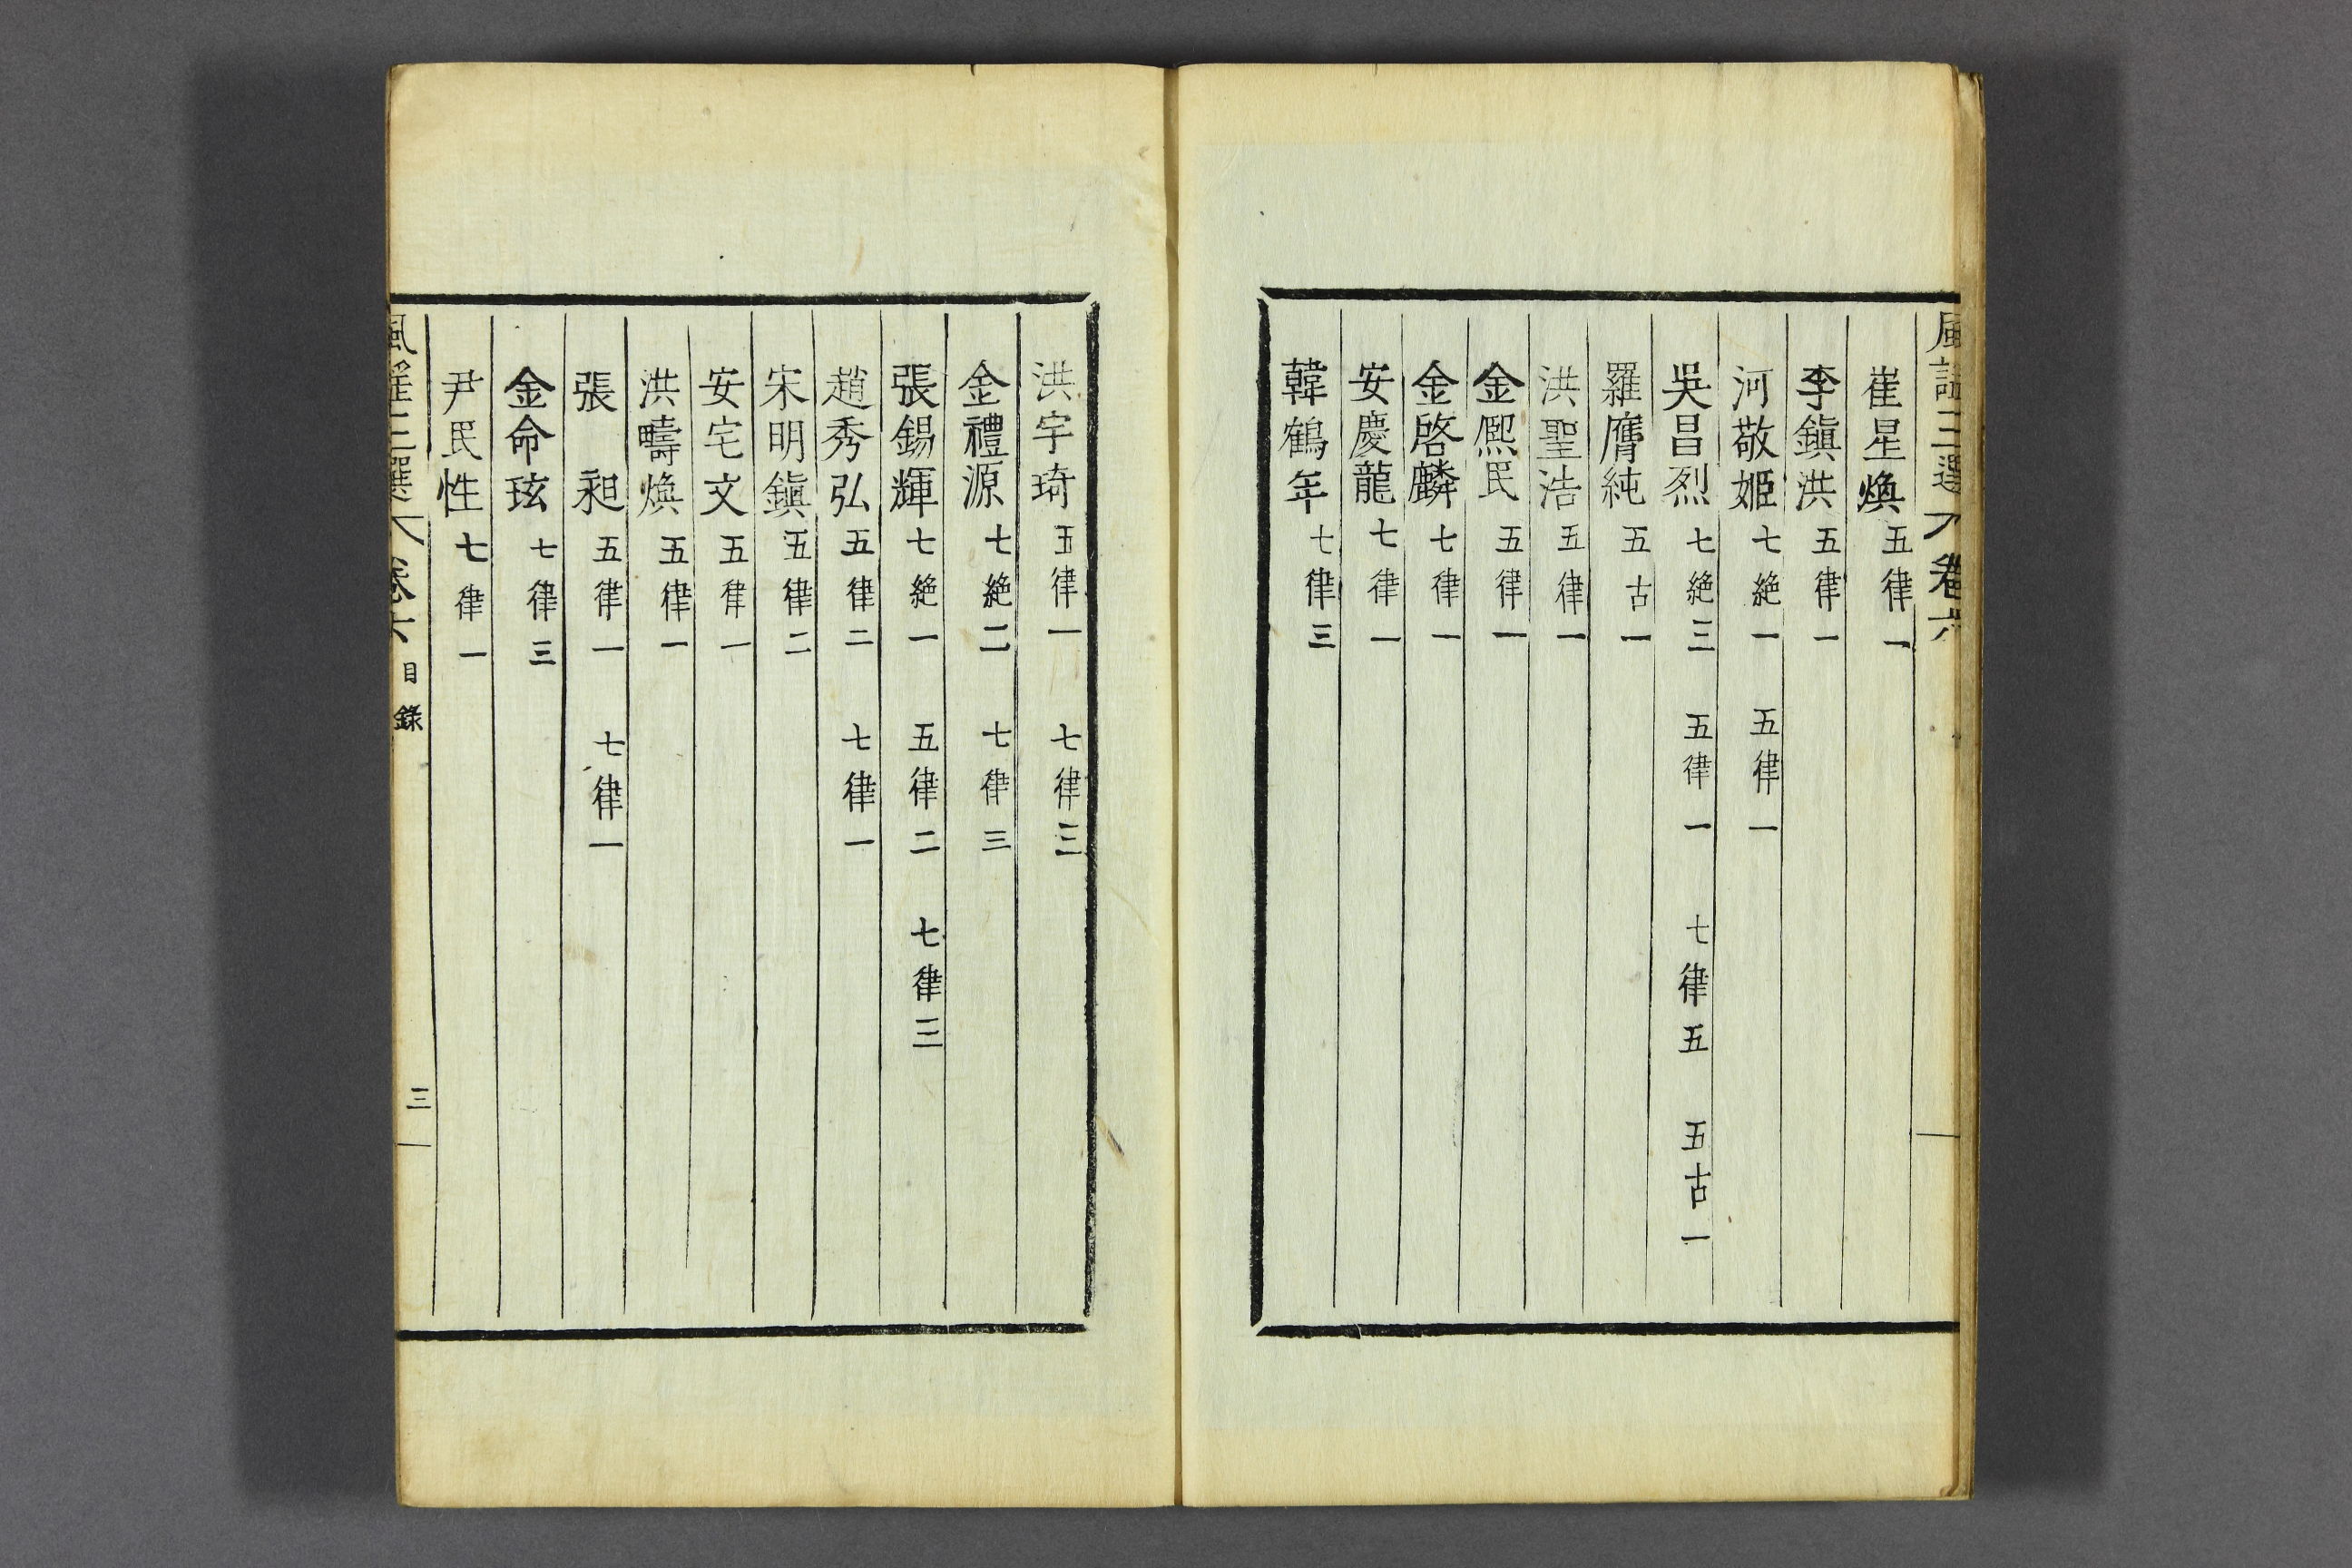 風謠三選 卷六
崔星煥 五律一
李鎭洪 五律一
河敬姬 七絶一 五律一
吳昌烈 七絶三 五律一 七律五 五古一
羅膺純 五古一
洪聖浩 五律一
金熈民 五律一
金啓麟 七律一
安慶龍 七律一
韓鶴年 七律三
洪宇琦 五律一 七律三
金禮源 七絶二 七律三
張錫輝 七絶一 五律二 七律三
趙秀弘 五律二 七律一
宋明鎭 五律二
安宅文 五律一
洪疇煥 五律一
張 昶 五律一 七律一
金命玹 七律三
尹民性 七律一
風謠三選 卷六 目錄 三